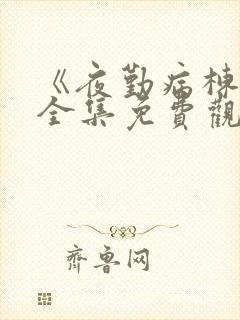 《夜勤病栋
全集免費觀
齊鲁网